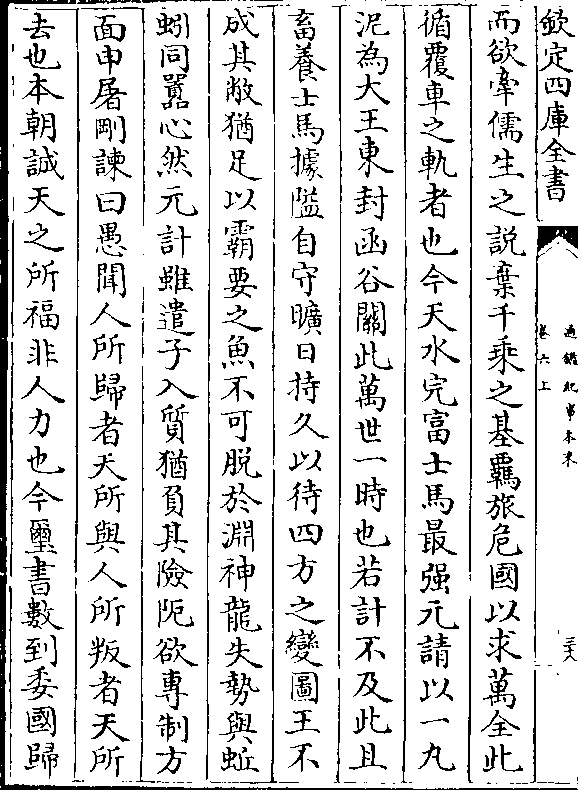 欽定四庫全書
通鑑紀事本末
卷六上
三六
而欲牽儒生之說棄千乘之基羈旅危國以求萬全此
循覆車之軌者也今天水完富士馬最强元請以一丸
泥為大王東封函谷關此萬世一時也若計不及此且
畜養士馬據隘自守曠日持久以待四方之變圖王不
成其敝猶足以霸要之魚不可脫於淵神龍失勢與蚯
蚓同囂心然元計雖遣子入質猶負其險阨欲專制方
面申屠剛諫曰愚聞人所歸者天所與人所叛者天所
去也本朝誠天之所福非人力也今璽書數到委國歸